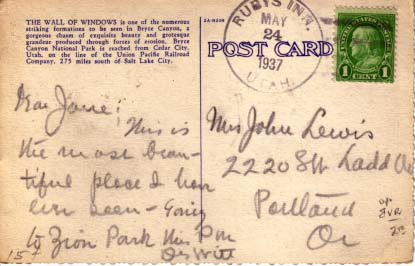 THE WALL OF WINDOWS is one of the numerous
striking formations to be seen in Bryce Canyon, a
gorgeous chasm of exquisite beauty and grotesque
grandeur produced through forces of erosion. Bryce
Canyon National Park is reached from Cedar City,
Utah, on the line of the Union Pacific Railroad
Company, 275 miles south of Salt Lake City.
2A-H258
POST CARD
RUBYS INN.
MAY
24
1937
UTAH.
1 CENT 1
Dear
This is
the most beau-
tiful place I have
ever seen – Going
to Zion Park this P.M.
DeWitt
Mrs John Lewis
2220 SW Ladd
Portland
Or
15